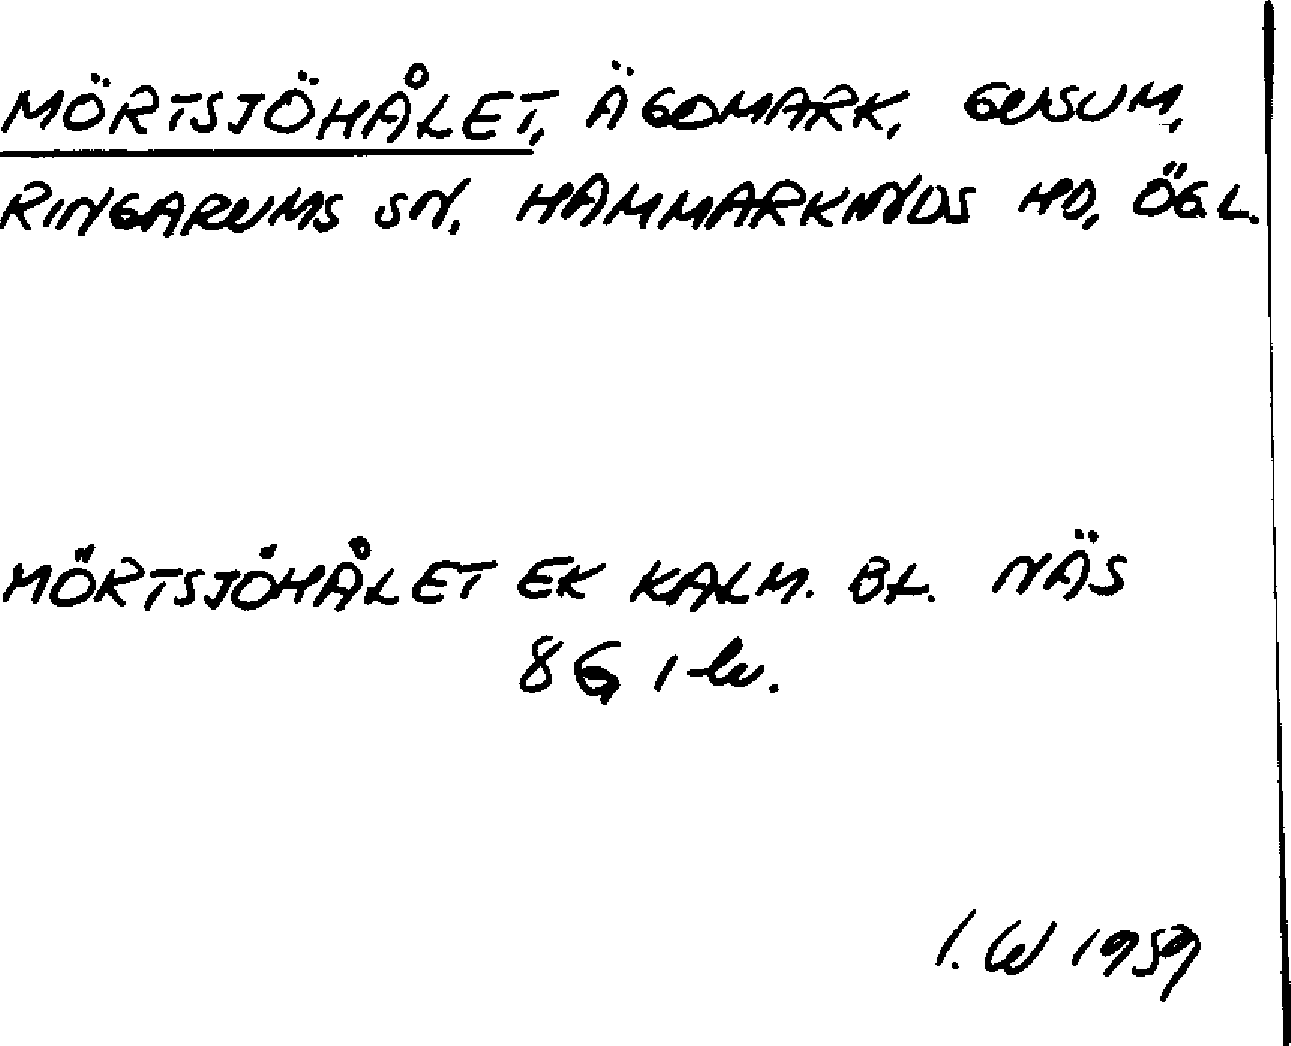 MÖRTSJÖHÅLET, ÄGOMARK, GUSUM,
RINGARUMS SN, HAMMARKINDS HD, ÖG.L.
MÖRTSJÖHÅLET EK KALM. BL. NÄS
8G 1
I. W 1959